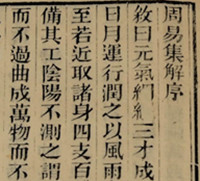 周易集解序
敘曰元氣絪縕三才成
日月運行潤之以風雨
至若近取諸身四支百
備其工陰陽不測之謂
而不過曲成萬物而不